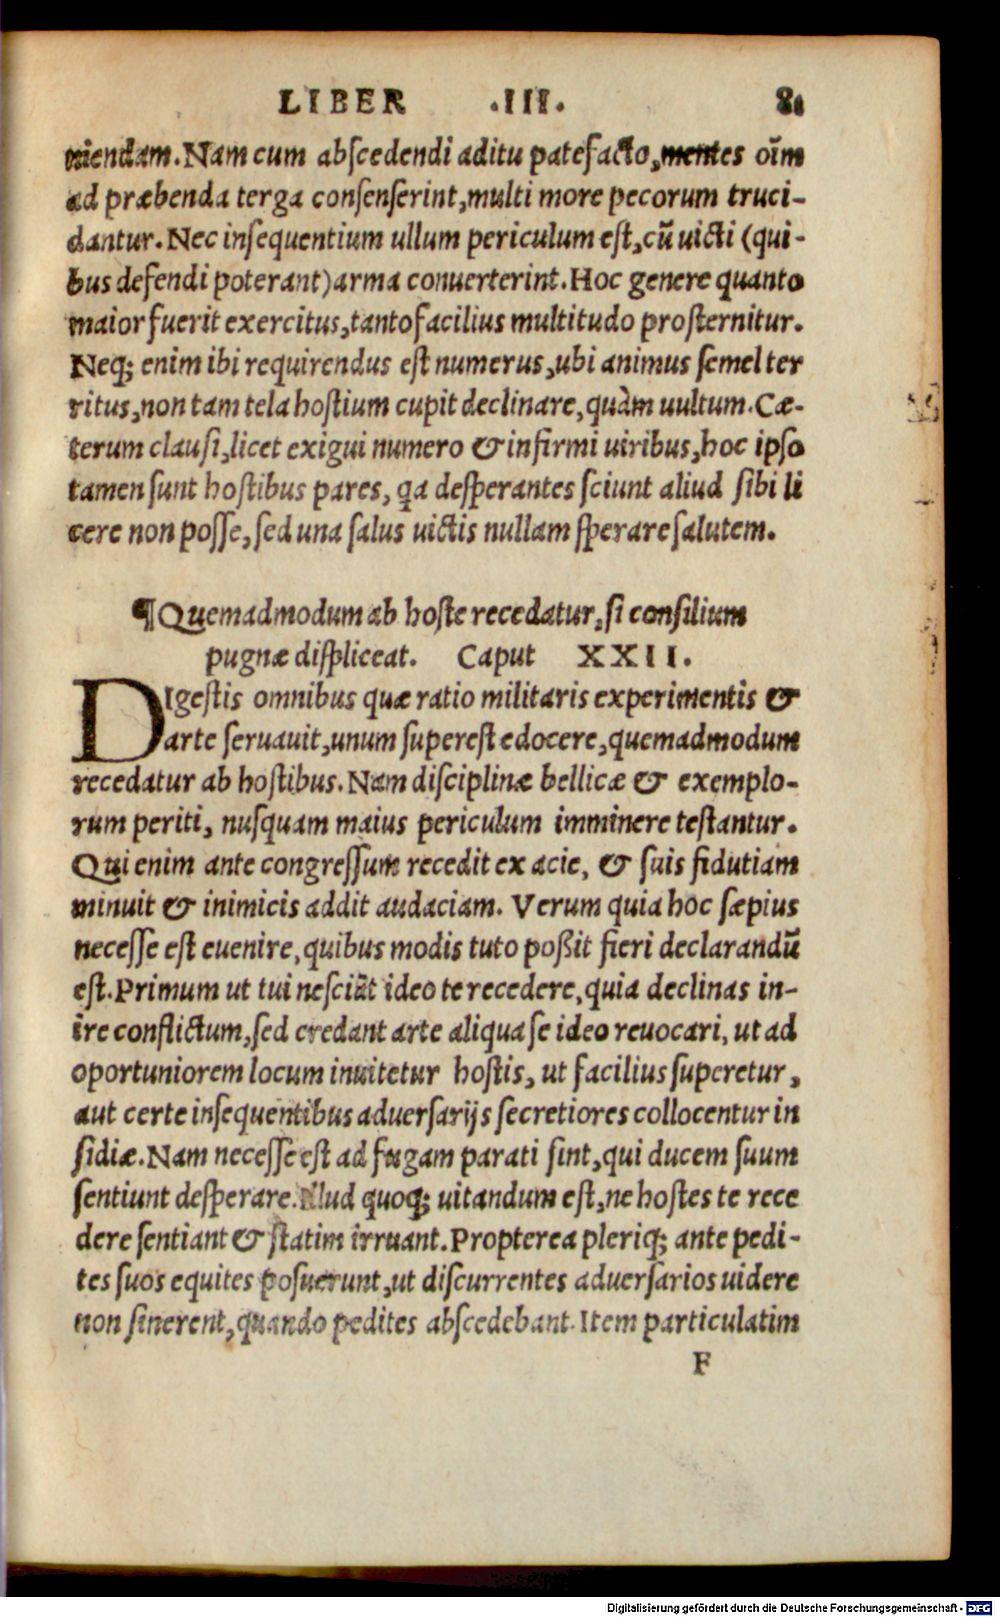 LIBER .III. 81
niendam. Nam cum abscedendi aditu patefacto, mentes oīm
ad præbenda terga consenserint, multi more pecorum truci-
dantur. Nec insequentium ullum periculum est, cū uicti (qui-
bus defendi poterant) arma conuerterint. Hoc genere quanto
maior fuerit exercitus, tanto facilius multitudo prosternitur.
Neq; enim ibi requirendus est numerus, ubi animus semel ter
ritus, non tam tela hostium cupit declinare, quàm uultum. Cæ-
terum clausi, licet exigui numero & infirmi uiribus, hoc ipso
tamen sunt hostibus pares, qa desperantes sciunt aliud sibi li
cere non posse, sed una salus uictis nullam sperare salutem.
¶Quemadmodum ab hoste recedatur, si consilium
pugnæ displiceat. Caput XXII.
DIgestis omnibus quæ ratio militaris experimentis &
arte seruauit, unum superest edocere, quemadmodum
recedatur ab hostibus. Nam disciplinæ bellicæ & exemplo-
rum periti, nusquam maius periculum imminere testantur.
Qui enim ante congressum recedit ex acie, & suis fidutiam
minuit & inimicis addit audaciam. Verum quia hoc sæpius
necesse est euenire, quibus modis tuto poßit fieri declarandū
est. Primum ut tui nesciāt ideo te recedere, quia declinas in-
ire conflictum, sed credant arte aliqua se ideo reuocari, ut ad
oportuniorem locum inuitetur hostis, ut facilius superetur,
aut certe insequentibus aduersarijs secretiores collocentur in
sidiæ. Nam necesse est ad fugam parati sint, qui ducem suum
sentiunt desperare. Illud quoq; uitandum est, ne hostes te rece
dere sentiant & statim irruant. Propterea pleriq; ante pedi-
tes suos equites posuerunt, ut discurrentes aduersarios uidere
non sinerent, quando pedites abscedebant. Item particulatim
F
Digitalisierung gefördert durch die Deutsche Forschungsgemeinschaft - DFG